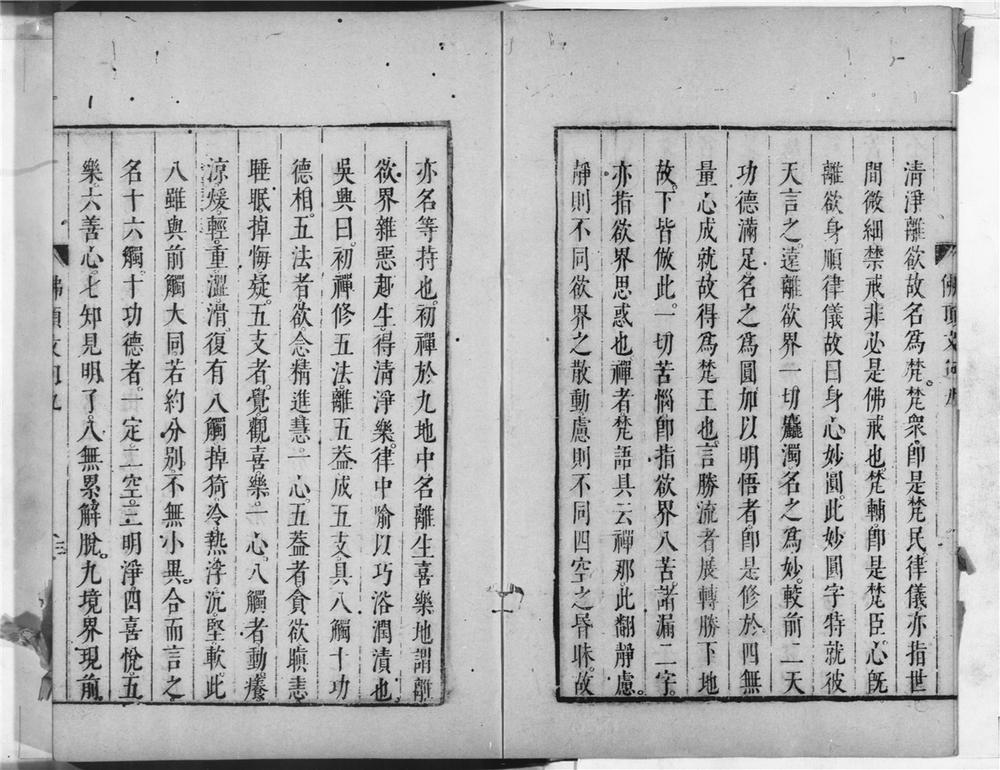 清淨離欲故名爲梵。梵衆。卽是梵民律儀亦指世
間微細禁戒非必是佛戒也。梵輔。卽是梵臣。心旣
離欲身順律儀故曰身心妙圓。此妙圓字特就彼
天言之。遠離欲界一切麤濁名之爲妙。較前二天
功德滿足名之爲圓加以明悟者。卽是修於。四無
量心成就故得爲梵王也。言勝流者展轉勝下地
故。下皆倣此。一切苦惱卽指欲界八苦。諸漏二字。
亦指欲界思惑也。禪者梵語具云禪那此翻靜慮。
靜則不同欲界之散動慮則不同四空之昏昧。故
亦名等持也。初禪於九地中名離生喜樂地謂離
欲界雜惡趣生。得清淨樂。律中喻以巧浴潤漬也
吳興曰。初禪修五法。離五葢成五支具八觸十功
德相。五法者欲。念精進慧。一心。五葢者貪欲瞋恚
睡眠掉悔疑。五支者。覺。觀喜。樂。一心。八觸者動癢
涼煖。輕。重。澀滑。復有八觸掉猗冷熱浮沉堅軟。此
八雖與前觸大同若約分別不無小異。合而言之
名十六觸。十功德者。一定。二空。三明淨四喜悅。五
樂。六善心。七知見明了。八無累解脫。九境界現前
佛頂文句九